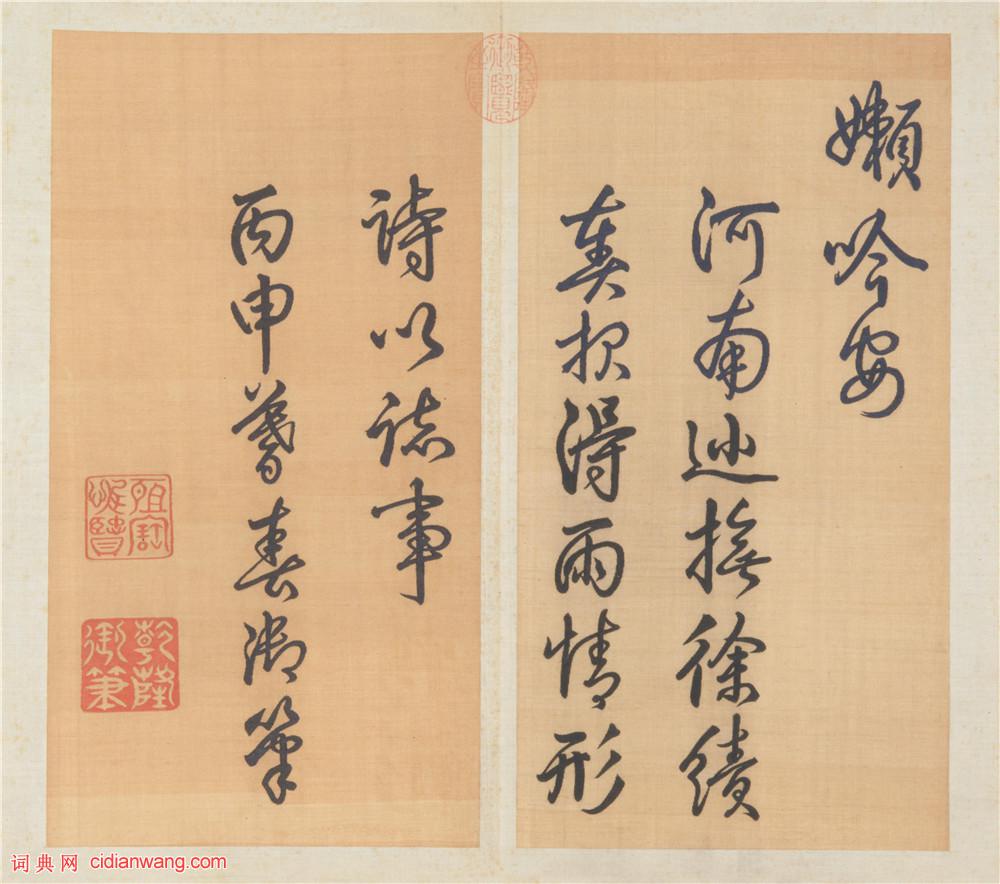 嬾吟安
河南巡撫徐績
奏报得雨情形
詩以誌事
丙申暮春御筆
乾隆御覽之寶
惟賢
乾隆御筆
词典网 cidianwang.com